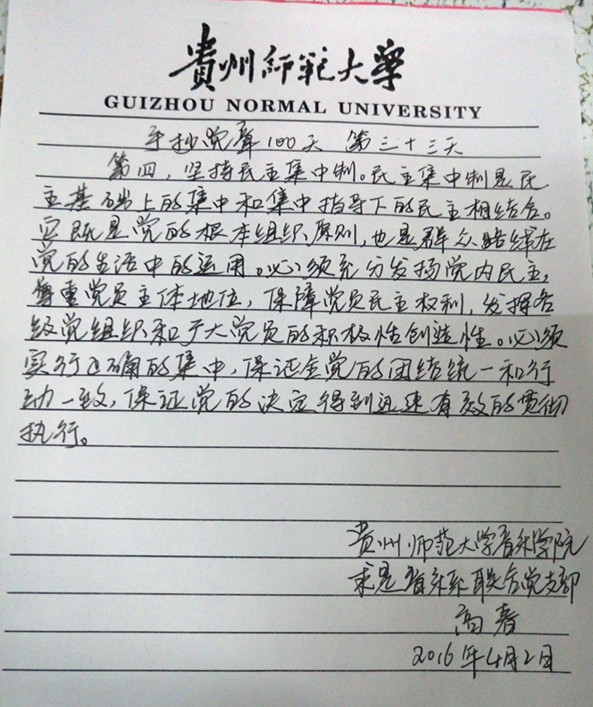 貴州師範大學
GUIZHOU NORMAL UNIVERSITY
手抄党章100天 第三十三天
第四,坚持民主集中制。民主集中制是民
主基础上的集中和集中指导下的民主相结合。
它既是党的根本组织原则,也是群众路线在
党的生活中的运用。必须充分发扬党内民主,
尊重党员主体地位,保障党员民主权利,发挥各
级党组织和广大党员的积极性创造性。必须
实行正确的集中,保证全党的团结统一和行
动一致,保证党的决定得到迅速有效的贯彻
执行。
贵州师范大学音乐学院
求是音乐系联合党支部
高春
2016年4月2日